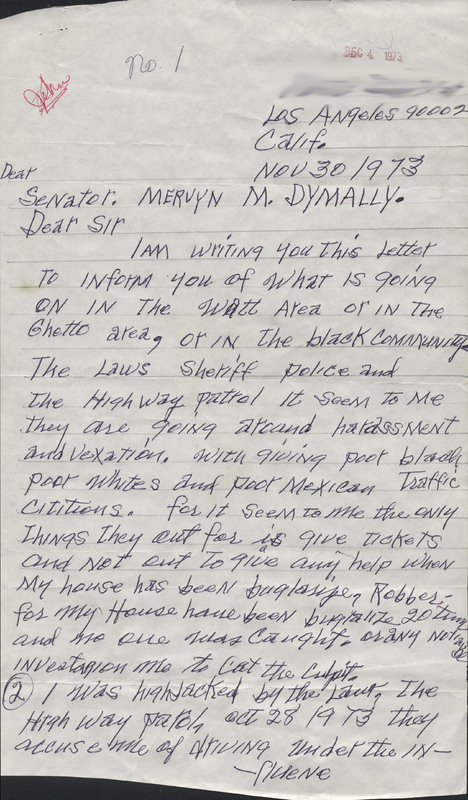 no. 1
DEC 4 1973
John
Los Angeles 90002
Calif.
NOV 30 1973
Dear
Senator. MERVYN M. DYMALLY.
Dear Sir
I AM writing you This Letter
To inform you of What is going
ON IN The Watt Area or in The
Ghetto area, or in The black COMMUNITY
The Laws Sheriff police and
the High way patrol it seem to me
they are going around harassment
and vexation. with giving poor black,
poor whites and poor Mexican Traffic
Cititions. for it seem to me the only
Things they out for is give tickets
and Not out To give any help when
My house has been buglarize, Robber-
for My House have been buglalize 20 time
and no one was Caught. or any
investagion me to Cat the Culpit.
② I was highJacked by the Law, The
High way patro, oct 28 1973 they
accuse me of driving under the IN-
-fluence